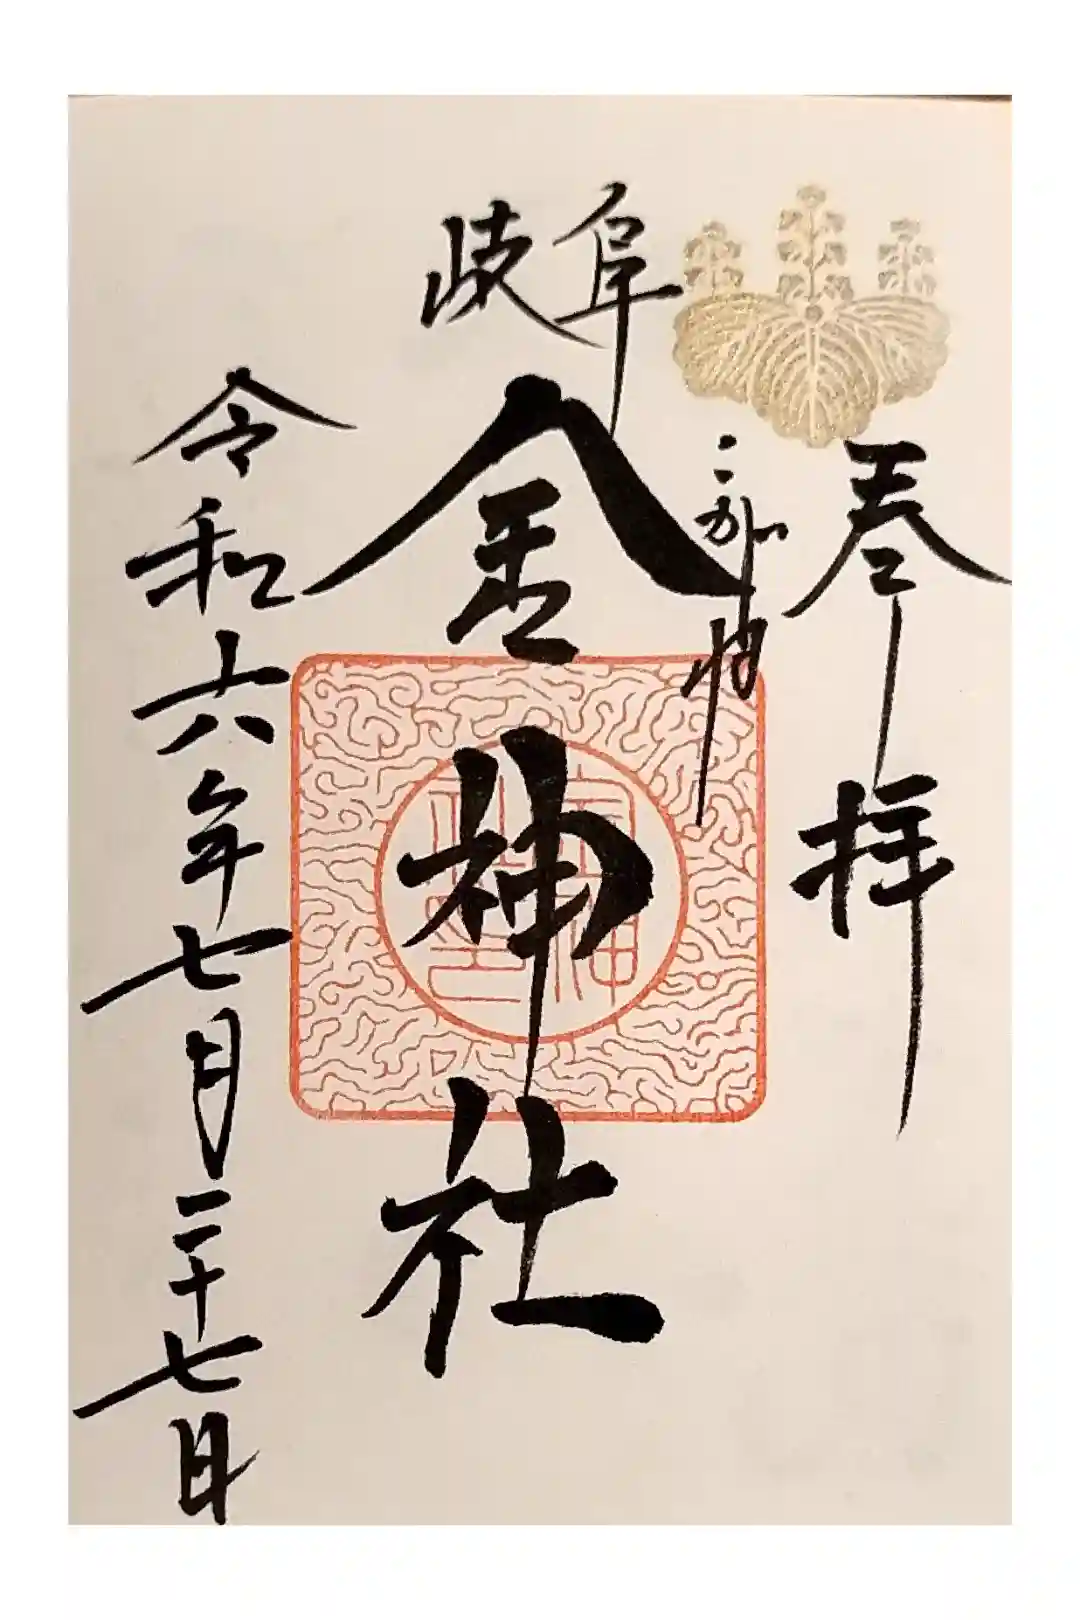 奉拝
岐阜
金神社
令和六年七月二十七日